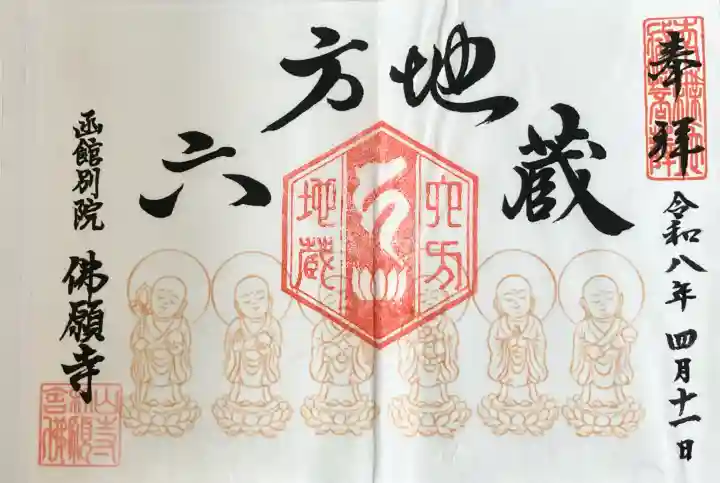 奉拝
令和八年 四月十一日
六方地蔵
六方
地蔵
函館別院 佛願寺